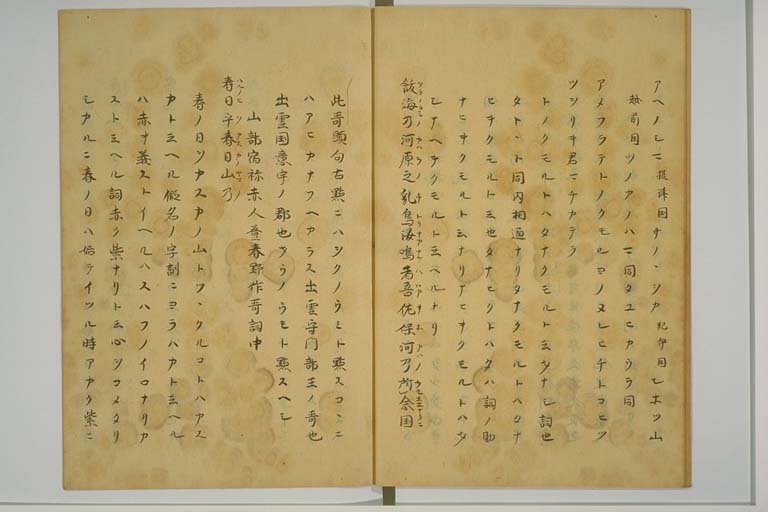 アヘノシマ 摂津国 サノヽシカ 紀伊国 シホツ山
越前国 ツノアノハマ 同 タユヒカウラ 同
アメフラテトノクモルヨノヌレヒチトコヒツ
ツヲリキ君マチカテラ
トノクモルトハタナクモルト云タナシ詞也
タトヽト同内相通ナリタナクモルトハタナ
ヒキクモルト云也タナヒクトハタハ詞ノ助
ナヒキクモルト云ナリナヒキクモルトハタ
シアヘテクモルト云ヘルナリ
飫海乃河原之乳鳥汝鳴者吾佐保河乃所念国
此哥頭句古點ニハヲクノウミト點スコヽニ
ハアヒカナフヘカラス出雲守門部王ノ哥也
出雲国意宇ノ郡也ヲウノウミト點スヘシ
山部宿祢赤人登春野作哥詞中
春日乎春日山乃
春ノ日ヲカスカノ山トツヽクルコトハカス
カト云ヘル假名ノ字訓ニヨラハカト云ヘル
ハ赤キ義ストイヘルハスハフノイロナリカ
スト云ヘル詞赤ク紫ナリト云心ヲコメタリ
シカルニ春ノ日ハ始テイツル時アカク紫ニ